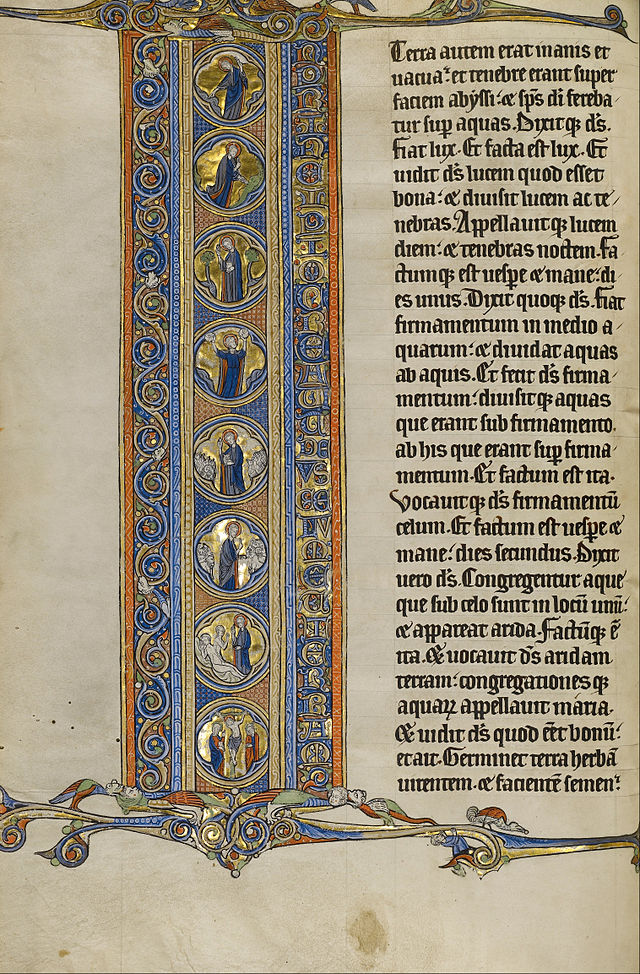 IN PRINCIPIO CREAUIT DEVS CELUM ET TERRAM
Terra autem erat inanis et
uacua: et tenebre erant super
faciem abyssi: & sp̅s di̅ fereba
tur sup̱ aquas. Dixitq; ds̅.
fiat lux. Et facta est lux. Et
uidit ds̅ lucem quod esset
bona: & diuisit lucem ac te/
nebras. Appellauitq; lucem
diem: & tenebras noctem. Fa
ctumq; est uesp̱e & mane: di/
es unus. Dixit quoq; ds̅. Fiat
firmamentum in medio a/
quarum: & diuidat aquas
ab aquis. Et fecit ds̅ firma/
mentum: diuisitq; aquas
que erant sub firmamento.
ab his que erant sup̱ firma/
mentum. Et factum est ita.
Vocauitq; ds̅ firmamentu̅
celum. Et factum est uesp̱e &
mane: dies secundus. Dixit
uero ds̅. Congregentur aque
que sub celo sunt in locu̅ unu̅:
& appareat arida. Factu̅q; e̅
ita. Et uocauit ds̅ aridam
terram: congregationesq;
aquaꝝ appellauit maria.
Et uidit ds̅ quod e̅et bonu̅:
et ait. Germinet terra herba̅
uirentem. & faciente̅ semen: